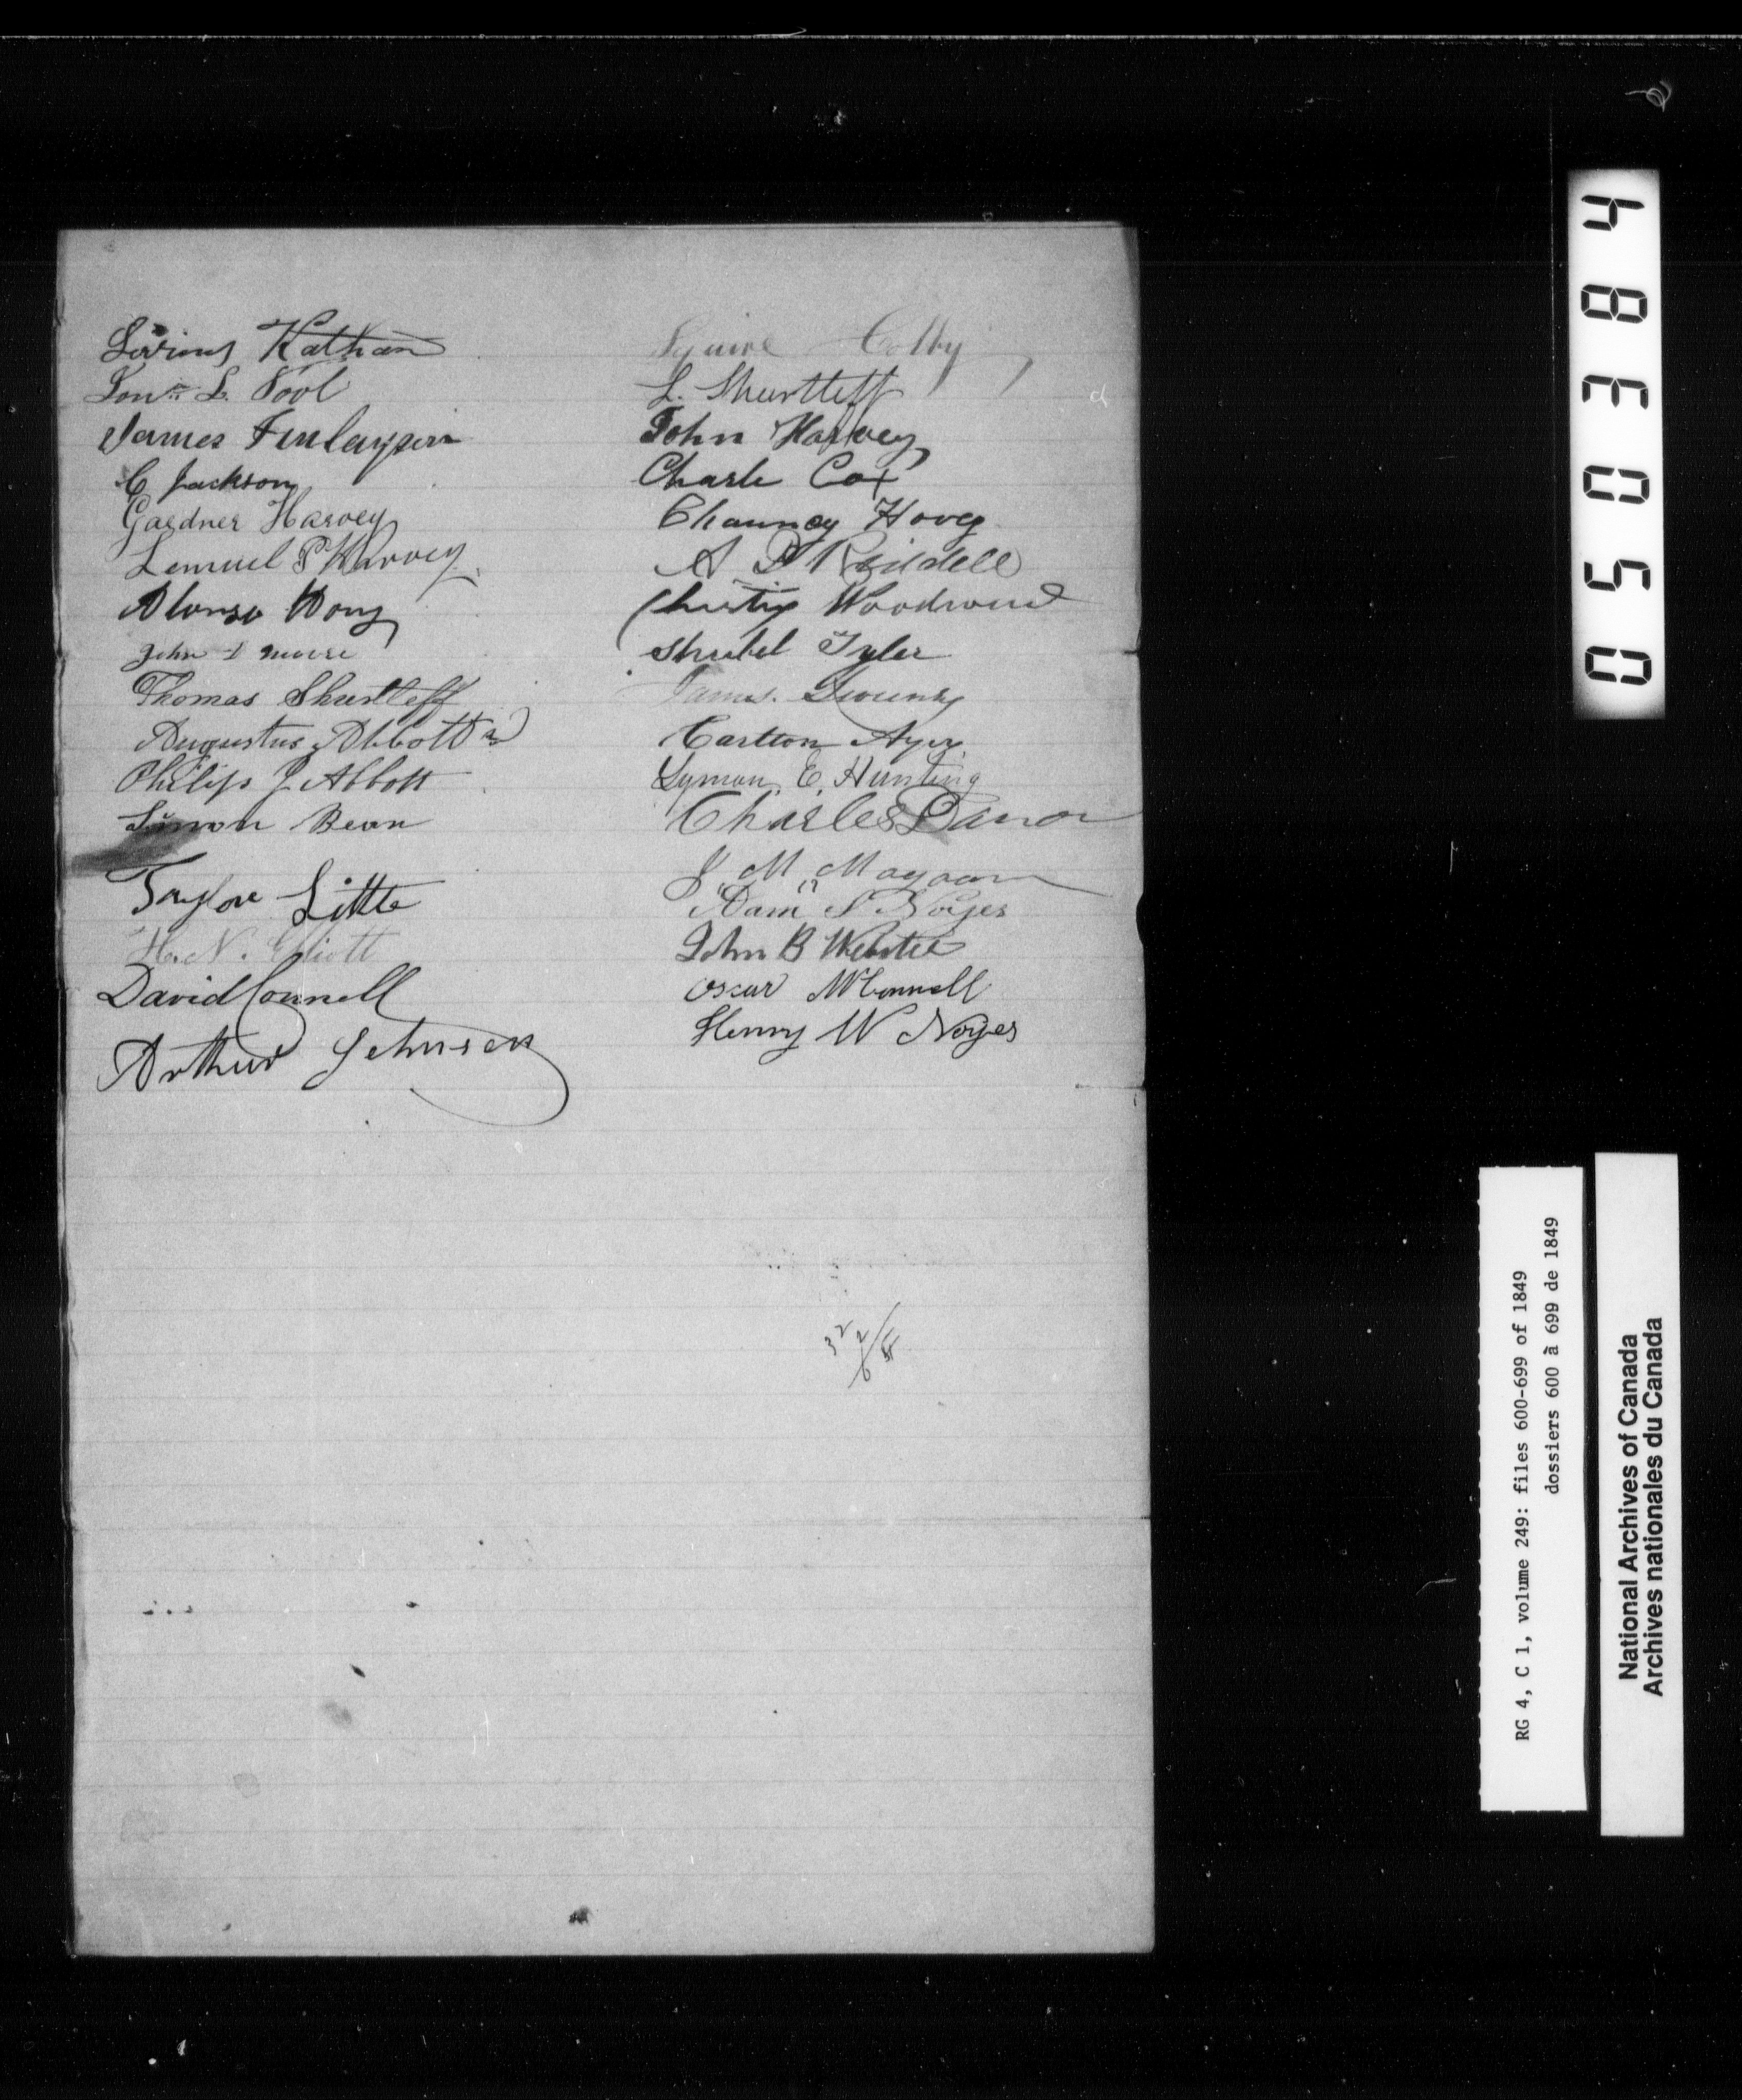 Kathan
L. Pool
James Finlayson
C Jackson
Gardner Harvey
Lemuel P Harvey
Alonso Hovey
John
Thomas Shurtleff
Augustus Abbott
Philip J Abbott
Simon Bean
Taylor Little
H. N. Eliott
David Connell
Arthur Johnson
Squire Colby
L. Shurtleff
John Harvey
Charls Cox
Chauncy Hovey
A Riddell
Woodward
Shubel Tyler
James
Carlton Ayer
Lyman E. Hunting
Charles
J M Magoon
Adam S Noyes
John B Webster
Oscar McConnell
Henry W Noyes
05038 4
RG 4, C 1, volume 249: files 600-699 of 1849
dossiers 600 à 699 de 1849
National Archives of Canada
Archives nationales du Canada